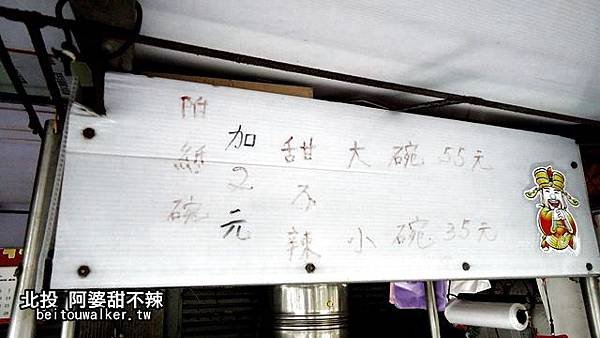 附紙碗
加2元
甜不辣
大碗 55元
小碗 35元
北投 阿婆甜不辣
beitouwalker.tw